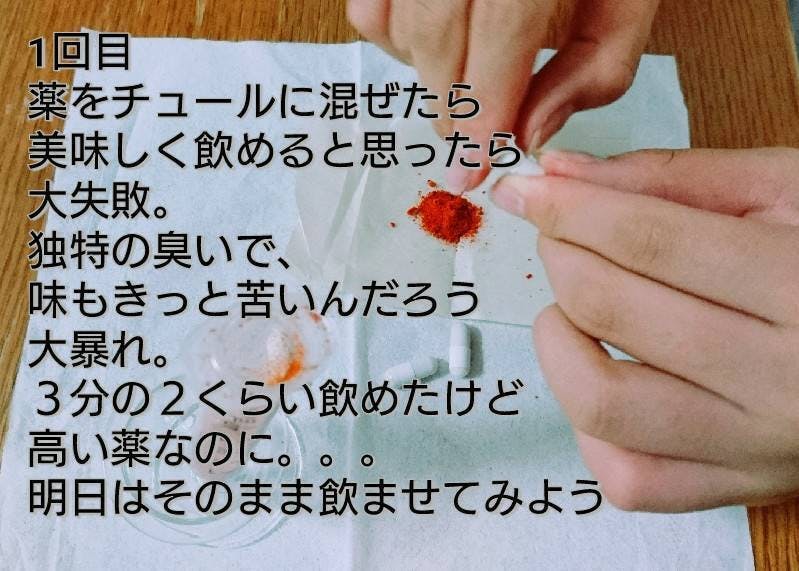 1回目
薬をチュールに混ぜたら
美味しく飲めると思ったら
大失敗。
独特の臭いで、
味もきっと苦いんだろう
大暴れ。
３分の２くらい飲めたけど
高い薬なのに。。。
明日はそのまま飲ませてみよう